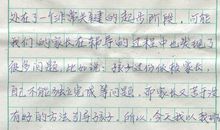 处在了一个非常关键的起步阶段，可能
我们的家长在辅导的过程中也发现了
很多问题，比如说：孩子过份依赖家长，
自己不能独立完成等问题，而家长又苦于没
有好的方法引导孩子。所以，今天我以我